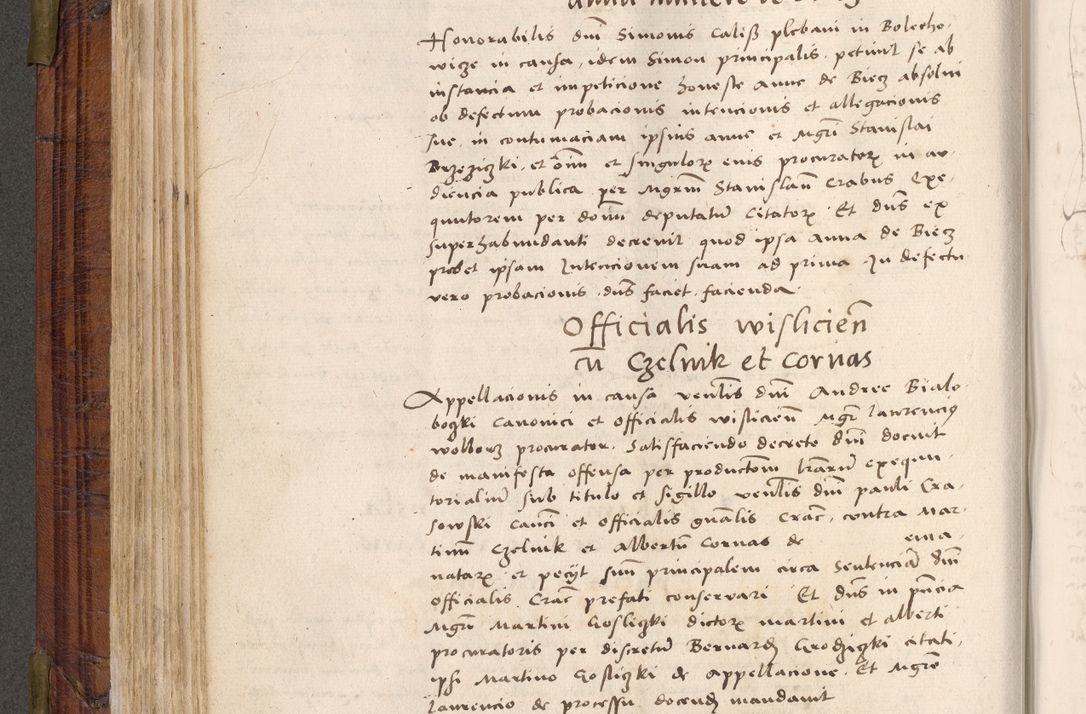 Honorabilis dni Simonis Calisz plebani in Boleche-
wicze in causa, idem Simon principalis. petivit se ab
instancia et impeticione honeste Anne de Biecz absolvi
ob defectum probacionis intencionis et allegacionis
sue. in contumaciam ipsius Anne et Mgri Stanislai
Brzeziczki. et oim et singulorz euis procuratorz in au-
diencia publica per Mgrm Stanislau Crabus Exe-
quutorem per dominu deputatu Citatorz. Et dns ex
superhabundanti decrevit quod ipsa Anna de Biecz
probet ipsam Intencionem suam ad prima. In defectu
vero probacionis. dns faciet. facienda
Officialis wislicien
cu Czelnik et Cornas
Appellacionis in causa venlis dni Andree Bialo-
boczki Canonici et officialis wislicien Mgr laurencius
wolborz procurator. Satisfaciendo decreto dni docuit
de manifesta offensa per productom lrarum exequu-
torialium sub titulo et sigillo venlis dni pauli Cra-
sowski Canci et officialis gnalis Crac. contra Mar-
tinu Czelnik et Albertu Cornas de ema-
natarz et peciit sum principalem circa Sentencia dni
officialis Crac prefati conservari Et dns in pncia
Mgri Martini Gosliczki dictorz martini et alberti
procuratoris per discretu Bernard Grodziczki citati.
ipsi Martino Gosliczki de Appellacione. Et Mgro
laurencio de processu docend mandavit